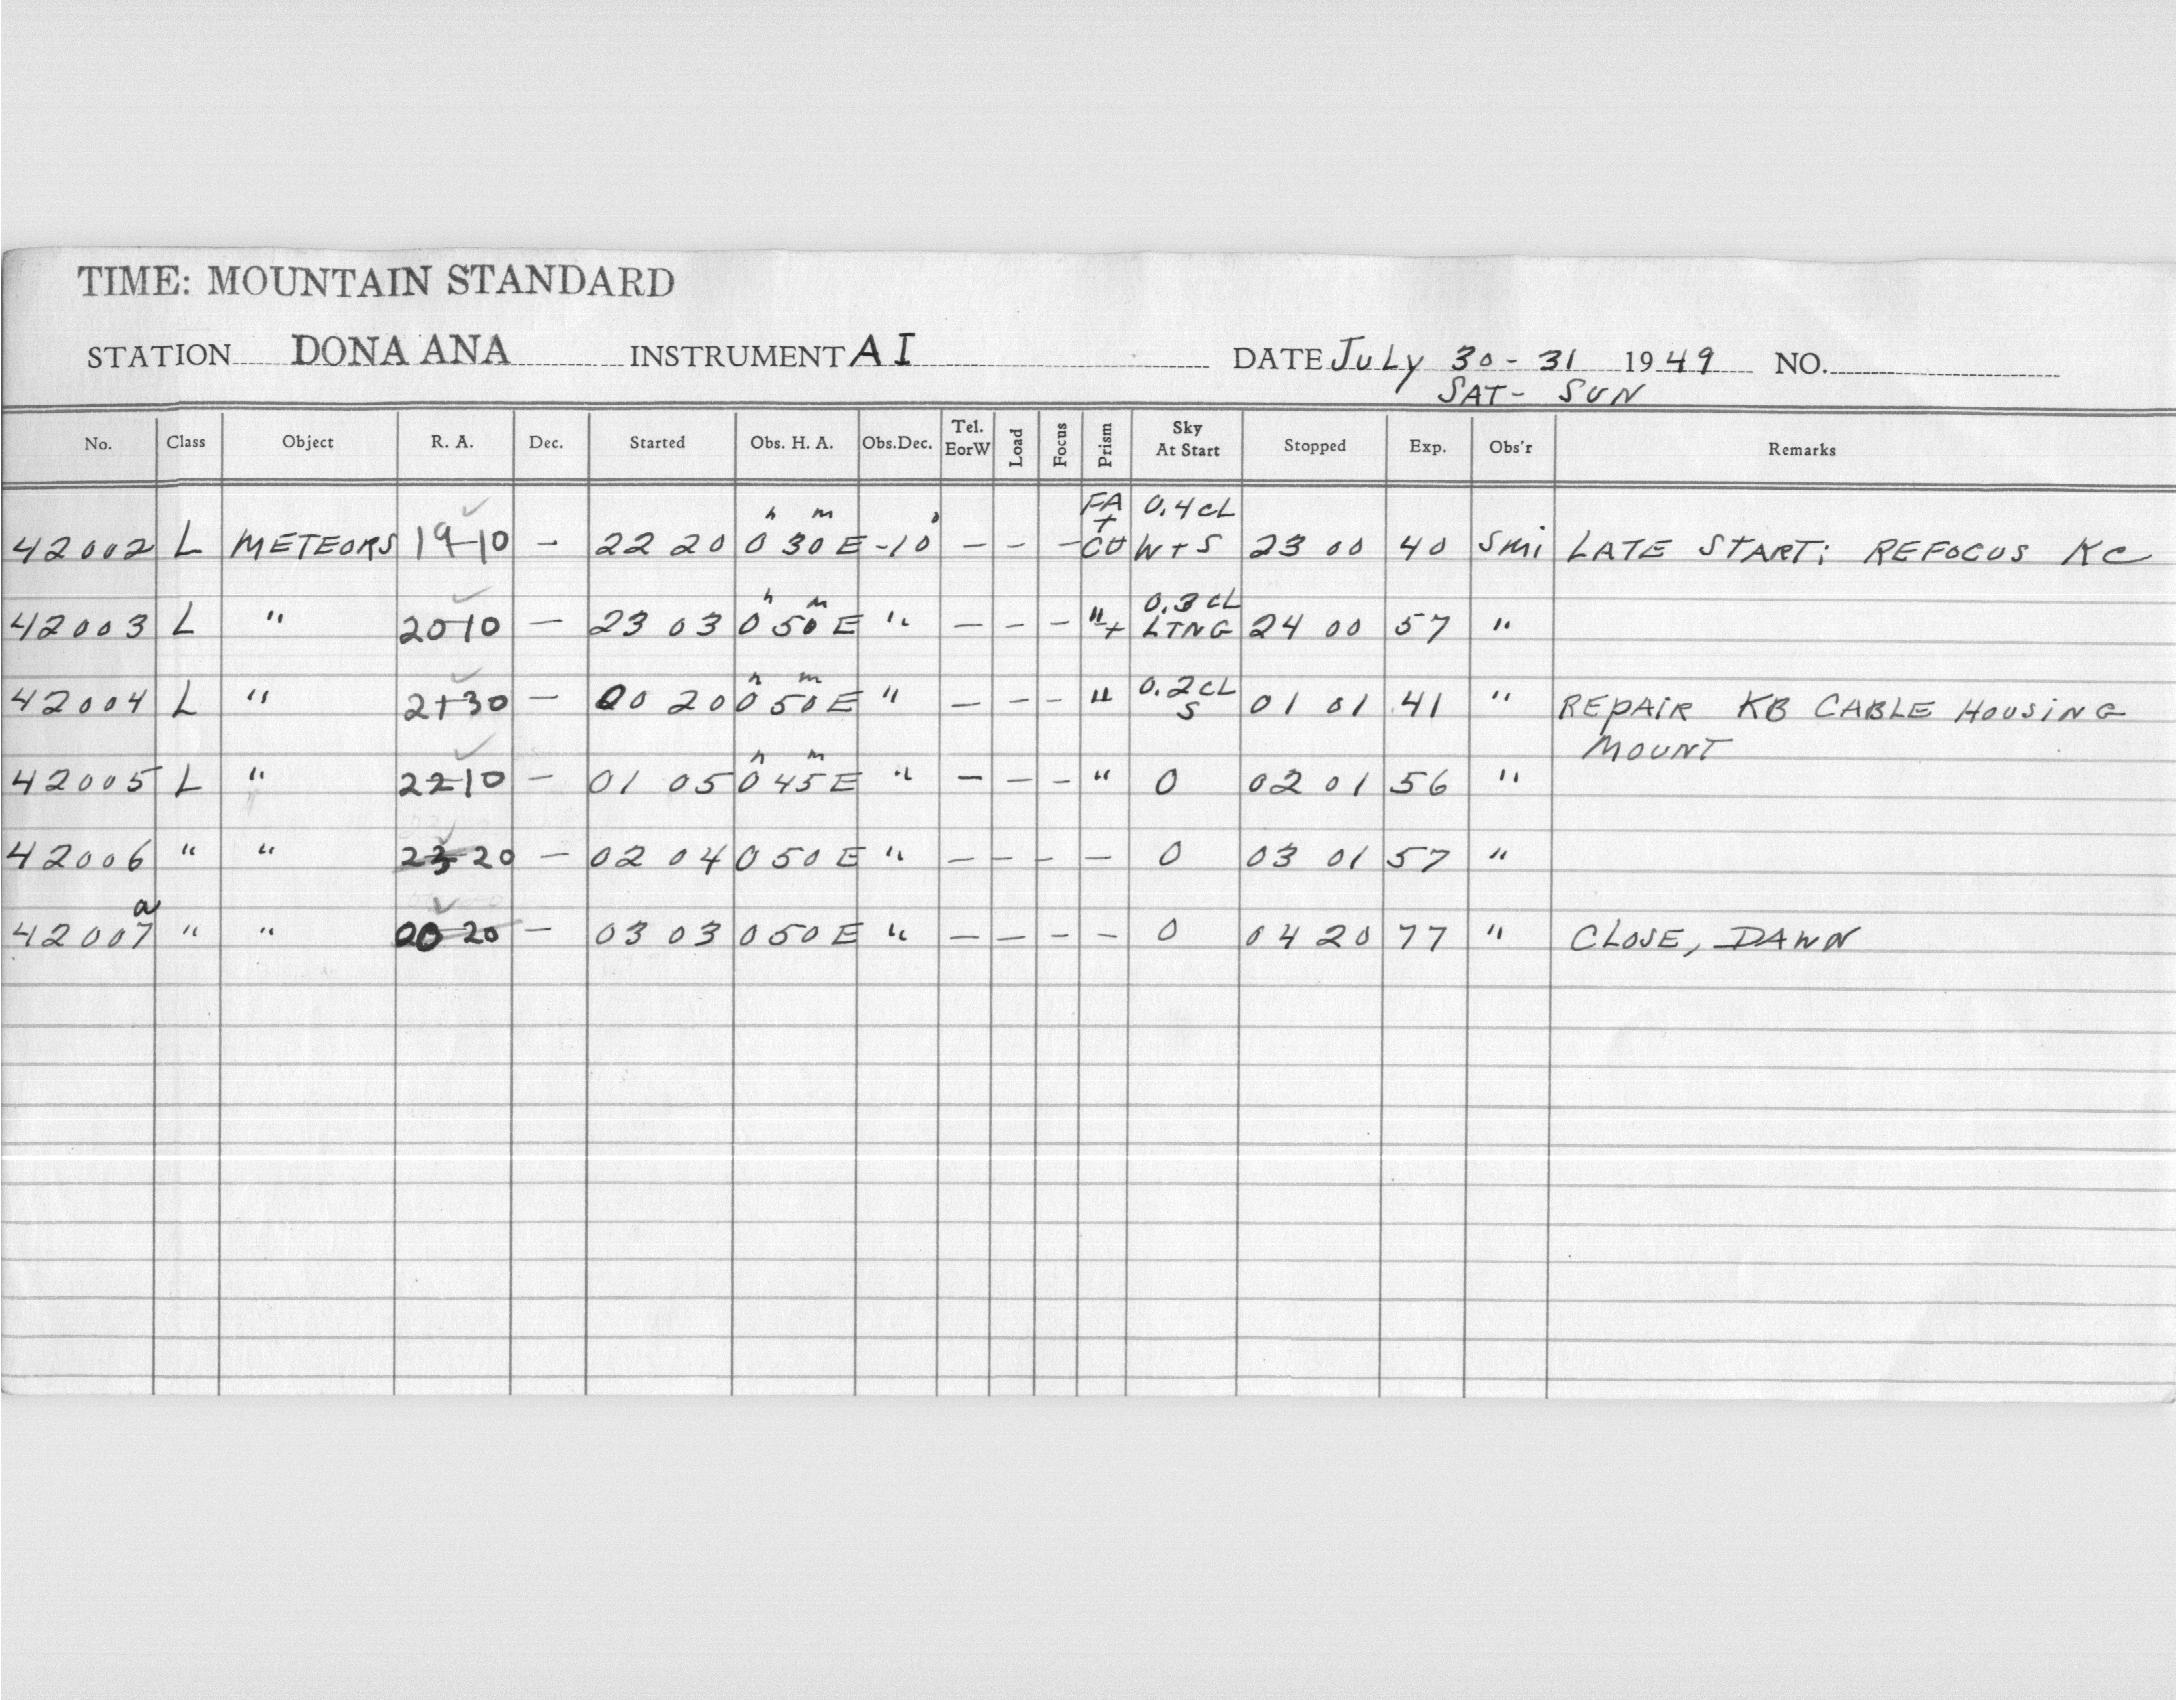 TIME: MOUNTAIN STANDARD
STATION DONA ANA INSTRUMENT AI DATE JULY 30-31 1949 NO.
SAT- SUN
No. Class Object R. A. Dec. Started Obs. H. A. Obs.Dec. Tel. EorW Load Focus Prism Sky At Start Stopped Exp. Obs'r Remarks
42002 L METEORS 19-10 - 22 20 0h 30m E -10° - - - FA + CU 0.4 CL W+S 23 00 40 Smi LATE START; REFOCUS KC
42003 L " 20 10 - 23 03 0h 50m E " - - - " + 0.3 CL LTNG 24 00 57 "
42004 L " 21 30 - 00 20 0h 50m E " - - - " 0.2 CL S 01 01 41 " REPAIR KB CABLE HOUSING
MOUNT
42005 L " 22 10 - 01 05 0h 45m E " - - - " 0 02 01 56 "
42006 " " 23 20 - 02 04 0 50 E " - - - - 0 03 01 57 "
a
42007 " " 00 20 - 03 03 0 50 E " - - - - 0 04 20 77 " CLOSE, DAWN